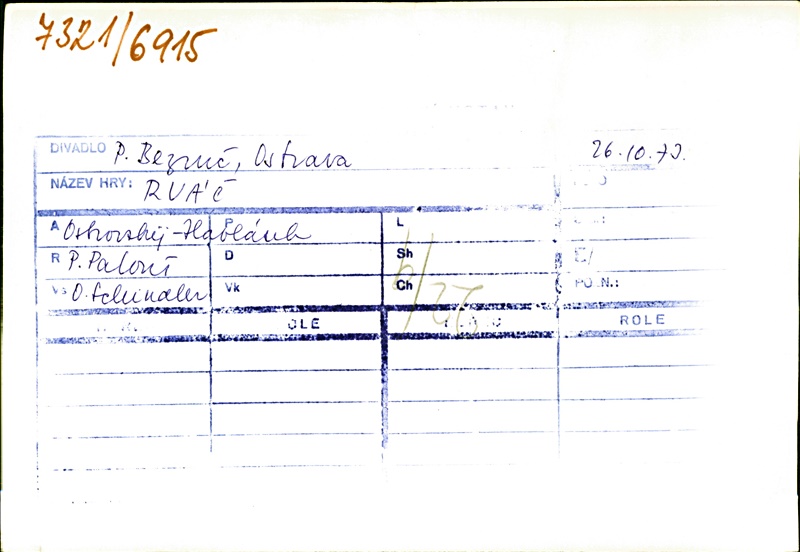 7321/6915
DIVADLO P. Bezruč, Ostrava 26.10.73.
NÁZEV HRY: RVÁČ
A Ostrovskij-Hablánk P L
R P. Palouš D Sh
Vs O. Schindler Vk Ch PO N.:
6/76
OLE ROLE